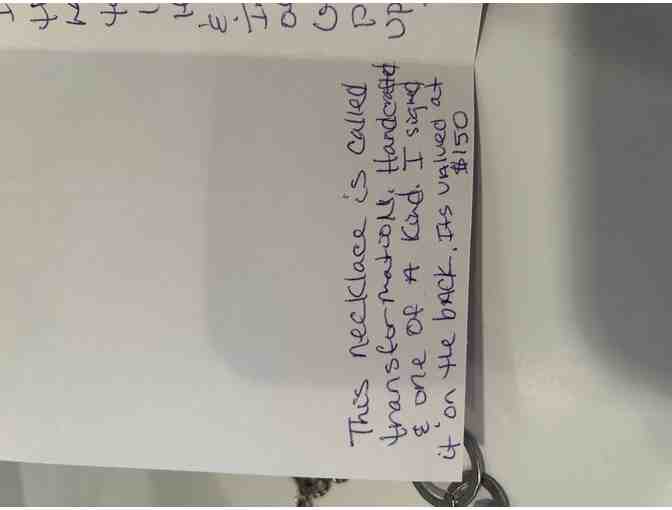 This necklace is called
transformation. Handcrafted
& one of A kind. I signed
it on the back. Its valued at
$150